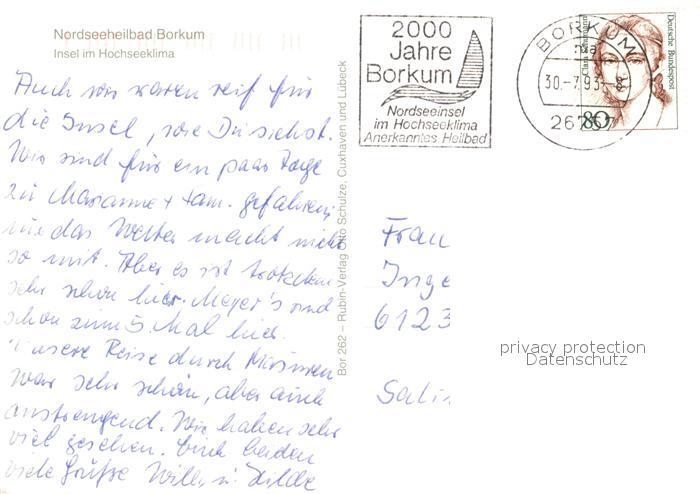 Nordseeheilbad Borkum
Insel im Hochseeklima
Auch wir waren reif für
die Insel, wie Du siehst.
Wir sind für ein paar Tage
zu Marianne + Fam. gefahren,
nur das Wetter macht nicht
so mit. Aber es ist trotzdem
sehr schön hier. Meyer's sind
schon zum 5. Mal hier.
Unsere Reise durch
War sehr schön, aber auch
anstrengend. Wir haben sehr
viel gesehen. Euch beiden
viele Grüße Willi u. Hilde
Bor 262 – Rubin-Verlag Otto Schulze, Cuxhaven und Lübeck
2000
Jahre
Borkum
Nordseeinsel
im Hochseeklima
Anerkanntes Heilbad
BORKUM 1
na
30.-7.93.-8
26757
Deutsche Bundespost
Clara Schumann
80
Frau
Inge
6123
privacy protection
Datenschutz